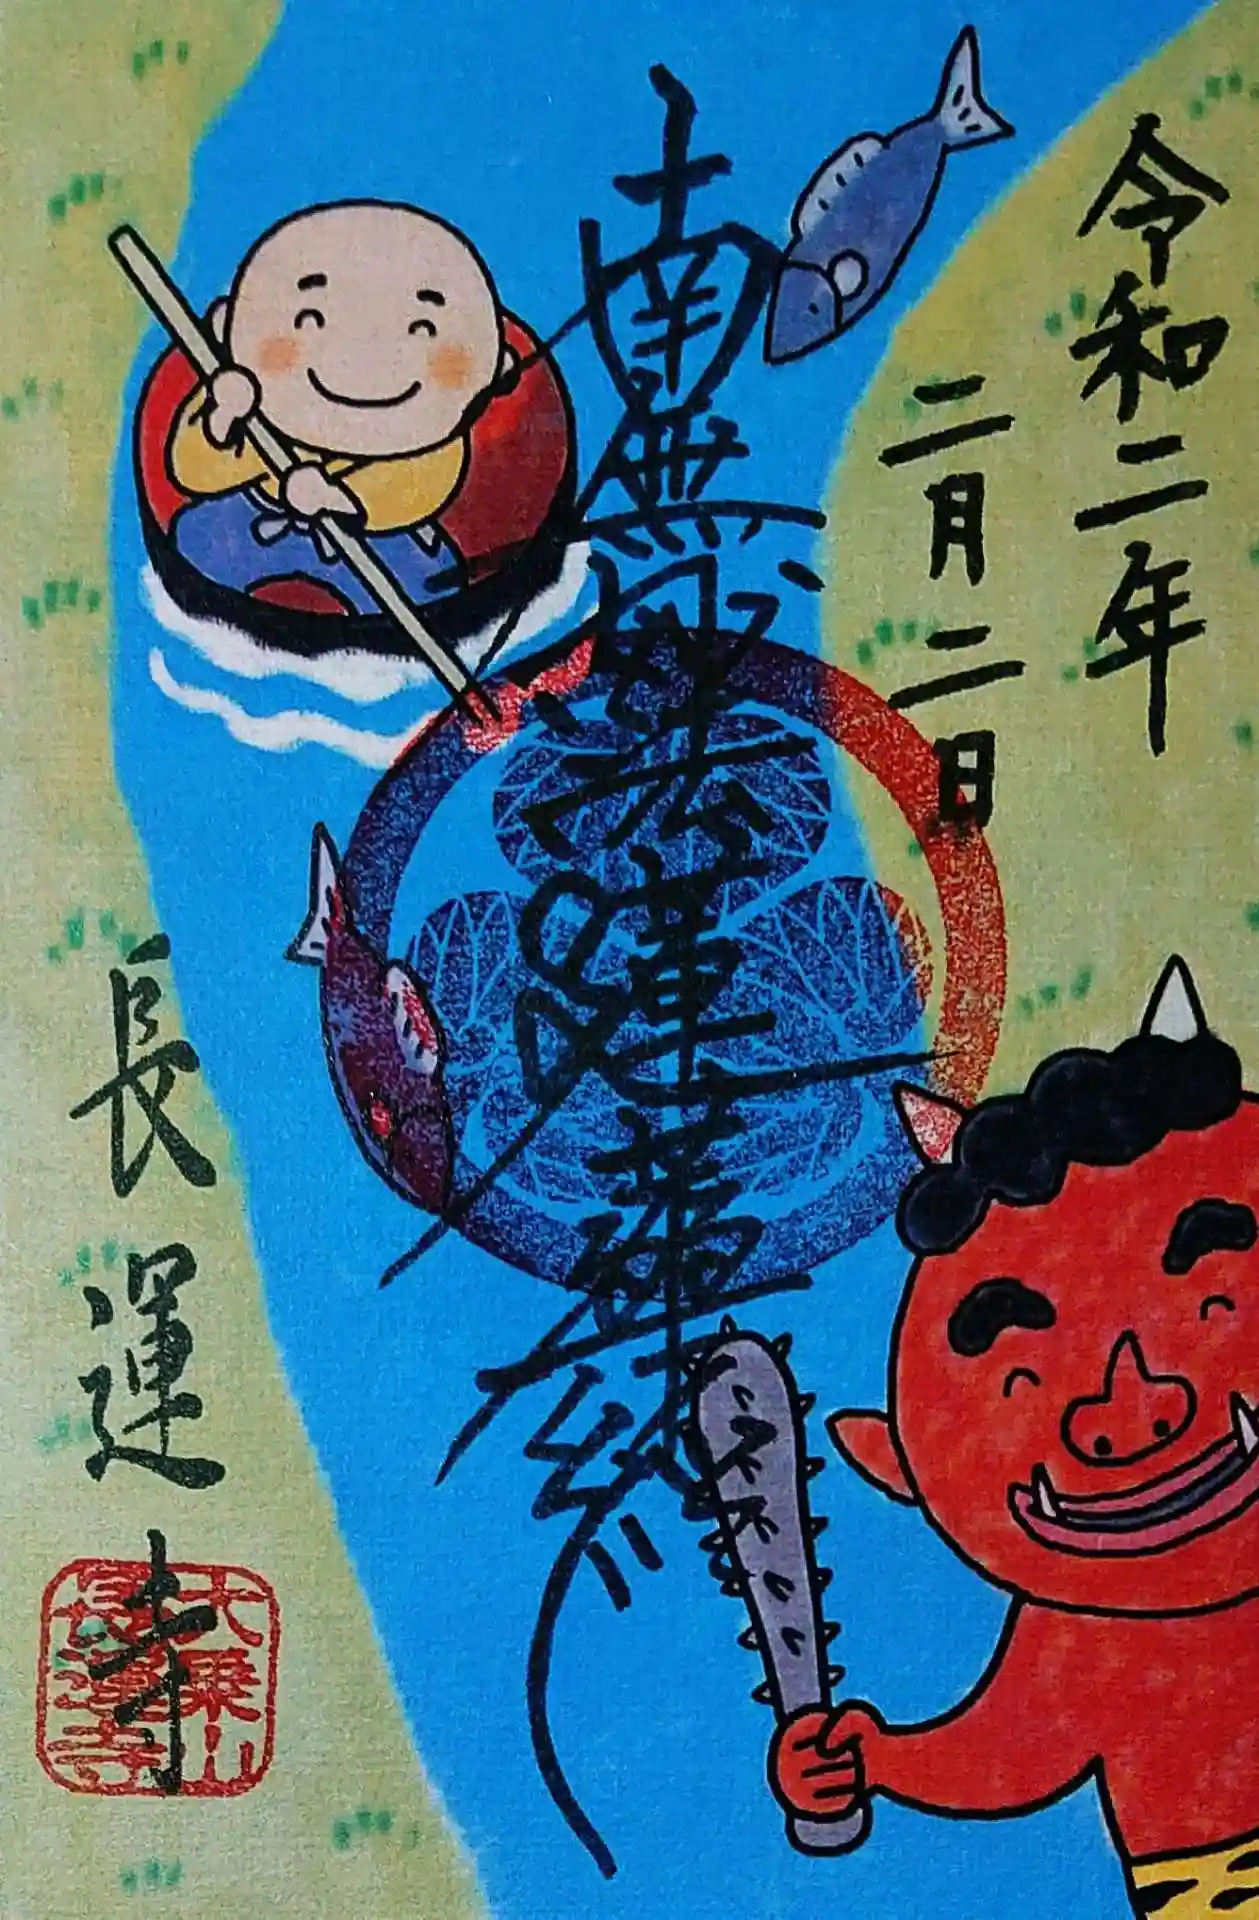 令和二年
二月二日
南無妙法蓮華経
長運寺
大乗山
長運寺